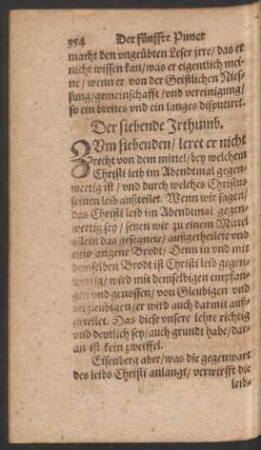 354 Der fünffte Punct
macht den vngeübten Leser jrre/das er
nicht wissen kan/was er eigentlich mei-
ne/wenn er von der Geistlichen Nies-
sung/gemeinschafft/vnd vereinigung/
so ein breites vnd ein langes disputiret.
Der siebende Irthumb.
ZVm siebenden/leret er nicht
recht von dem mittel/bey welchem
Christi leib im Abendtmal gegen-
wertig ist/vnd durch welches Christus
seinen leib außteilet. Wenn wir sagen/
das Christi leib im Abendtmal gegen-
wertig sey/setzen wir zu einem Mittel
allein das gesegnete/außgetheilete vnd
angene Brodt/Denn in vnd mit
demselben Brodt ist Christi leib gegen-
wertig/wird mit demselbigen empfan-
gen vnd genossen/von Gleubigen vnd
vnglenbigen/er wird auch darmit auß-
geteilet. Das diese vnsere lehre richtig
vnd deutlich sey/auch grundt habe/dar-
an ist kein zweiffel.
Eisenberg aber/was die gegenwart
des leibs Christi anlangt/verwirfft die
leib-